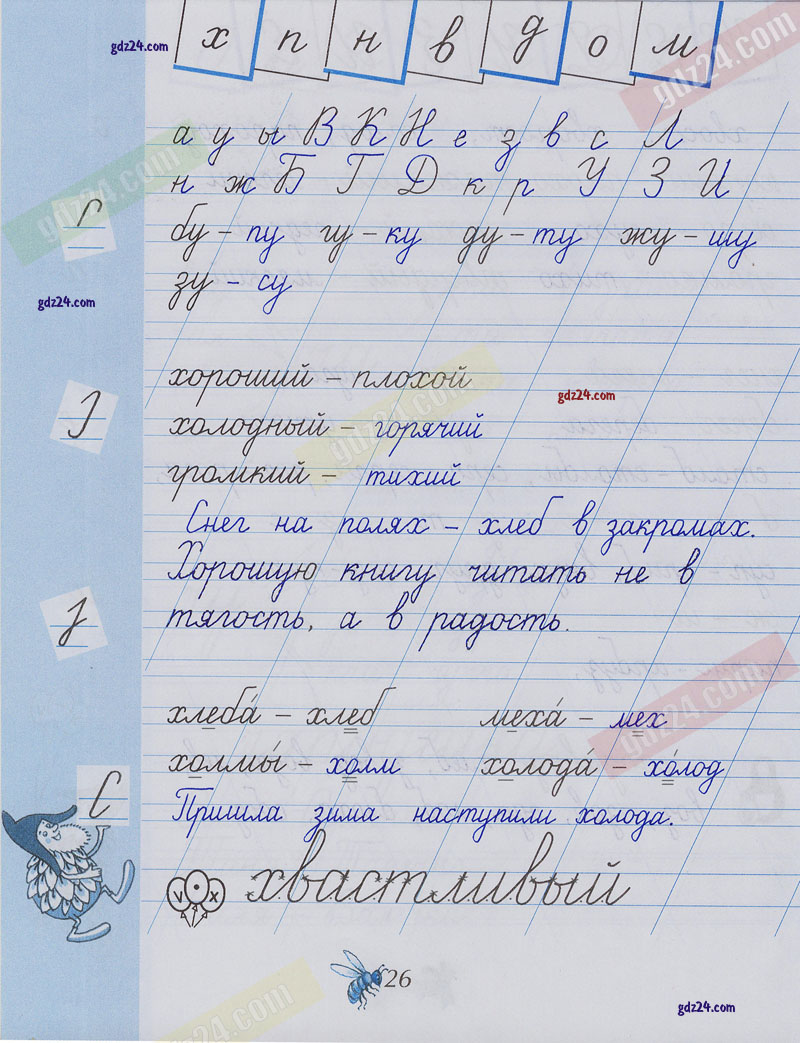 gdz24.com
х п н в д о м
gdz24.com
а у ы В К Н е з в с Л
н ж Б Г Д к р У З И
gdz24.com
бу – пу гу – ку ду – ту жу – шу
зу – су
gdz24.com
хороший – плохой
gdz24.com
холодный – горячий
gdz24.com
громкий – тихий
Снег на полях – хлеб в закромах.
Хорошую книгу читать не в
тягость, а в радость.
хлеба́ – хлеб меха́ – мех
gdz24.com
холмы́ – холм холода́ – хо́лод
Пришла зима наступили холода.
v • x хвастливый
26
gdz24.com
gdz24.com